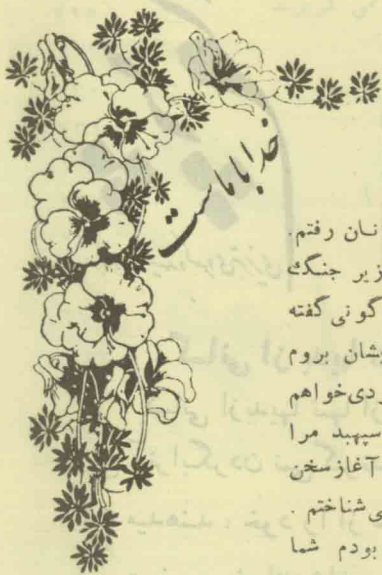 خدا با ماست
نان رفتم.
زیر جنگ
گونی گفته
یشان بروم
ردی خواهم
سپهبد مرا
آغاز سخن
ی شناختم .
بودم شما